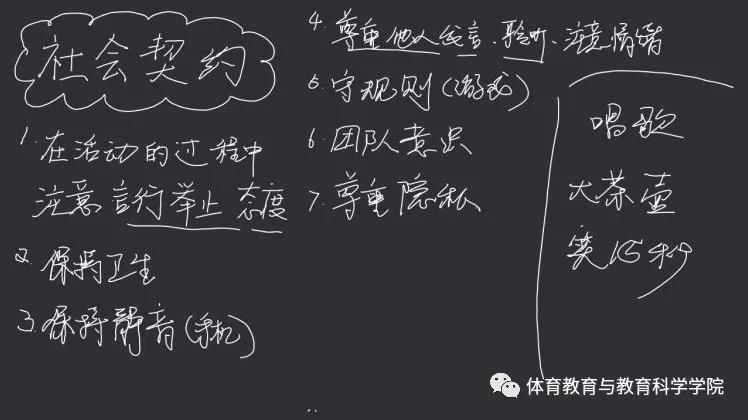 社会契约
1.在活动的过程中
注意言行举止态度
2.保持卫生
3.保持静音(手机)
4.尊重他人发言、聆听、注意情绪
5.守规则(游戏)
6.团队意识
7.尊重隐私
唱歌
大茶壶
笑15秒
体育教育与教育科学学院